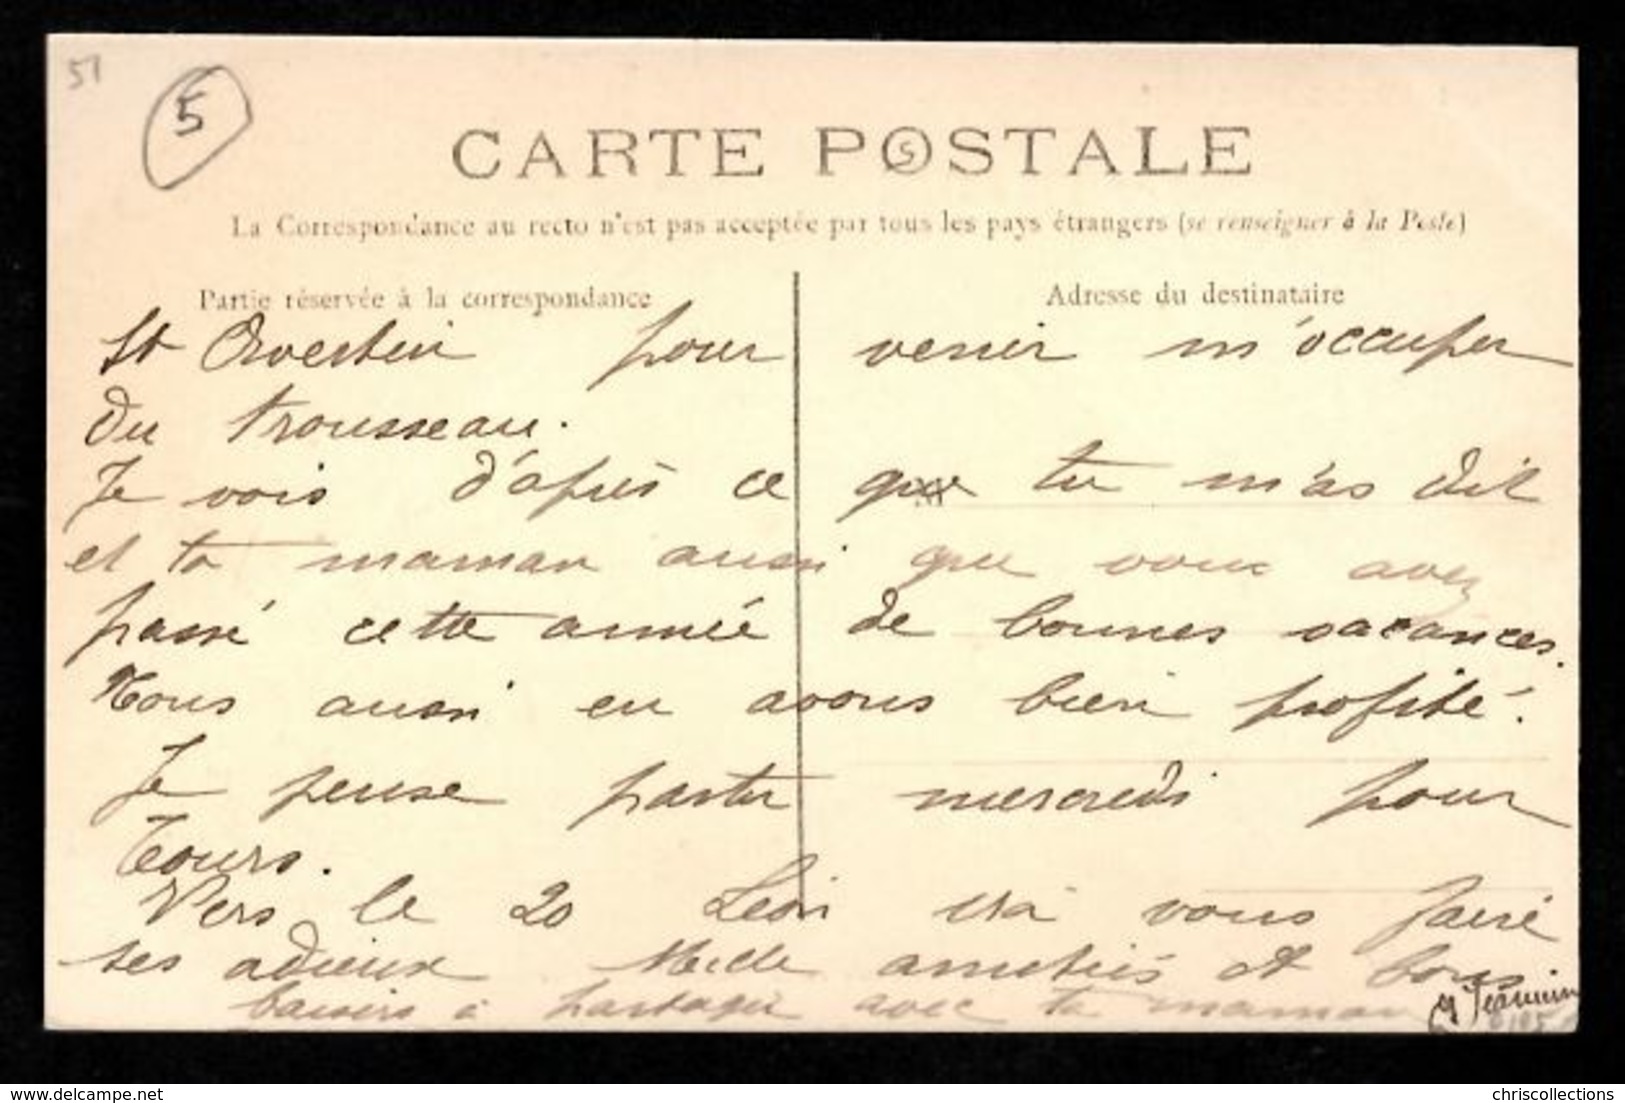 51
5
CARTE POSTALE
5
La Correspondance au recto n'est pas acceptée par tous les pays étrangers (se renseigner à la Poste)
Partie réservée à la correspondance
Adresse du destinataire
St Avertin pour venir m'occuper
du trousseau.
Je vois d'après ce que tu m'as dit
et ta maman aussi que vous avez
passé cette année de bonnes vacances.
Nous aussi en avons bien profité.
Je pense partir mercredi pour
Tours.
Vers le 20 Léon ira vous faire
ses adieux Mille amitiés et bons
baisers à partager avec ta maman
delcampe.net
chriscollections